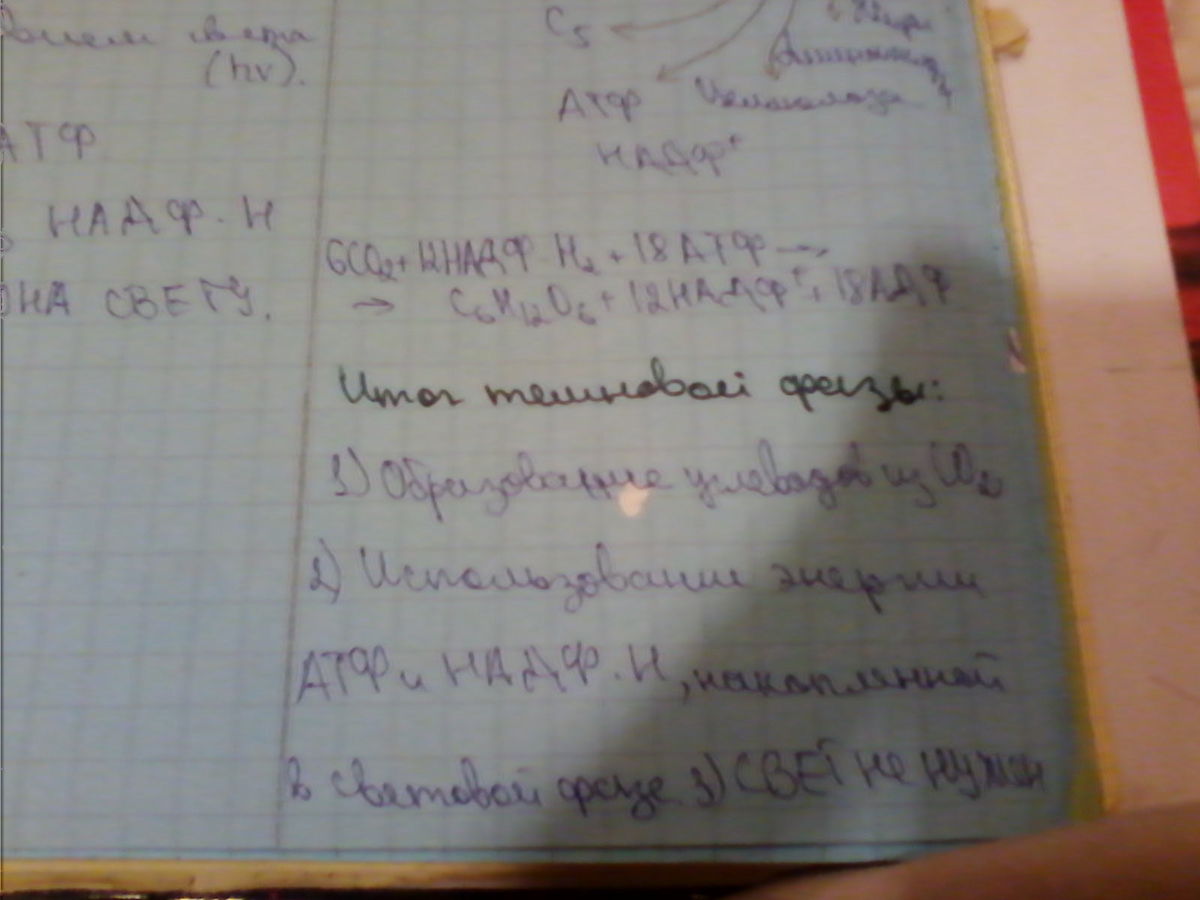 света
(hν).
АТФ
НАДФ·Н
НА СВЕТУ.
C₅
АТФ Целлюлоза
НАДФ⁺
6CO₂ + 12НАДФ·H₂ + 18АТФ →
→ C₆H₁₂O₆ + 12НАДФ⁺ + 18АДФ
Итог темновой фазы:
1) Образование углеводов из CO₂
2) Использование энергии
АТФ и НАДФ·Н, накопленной
в световой фазе 3) СВЕТ не нужен